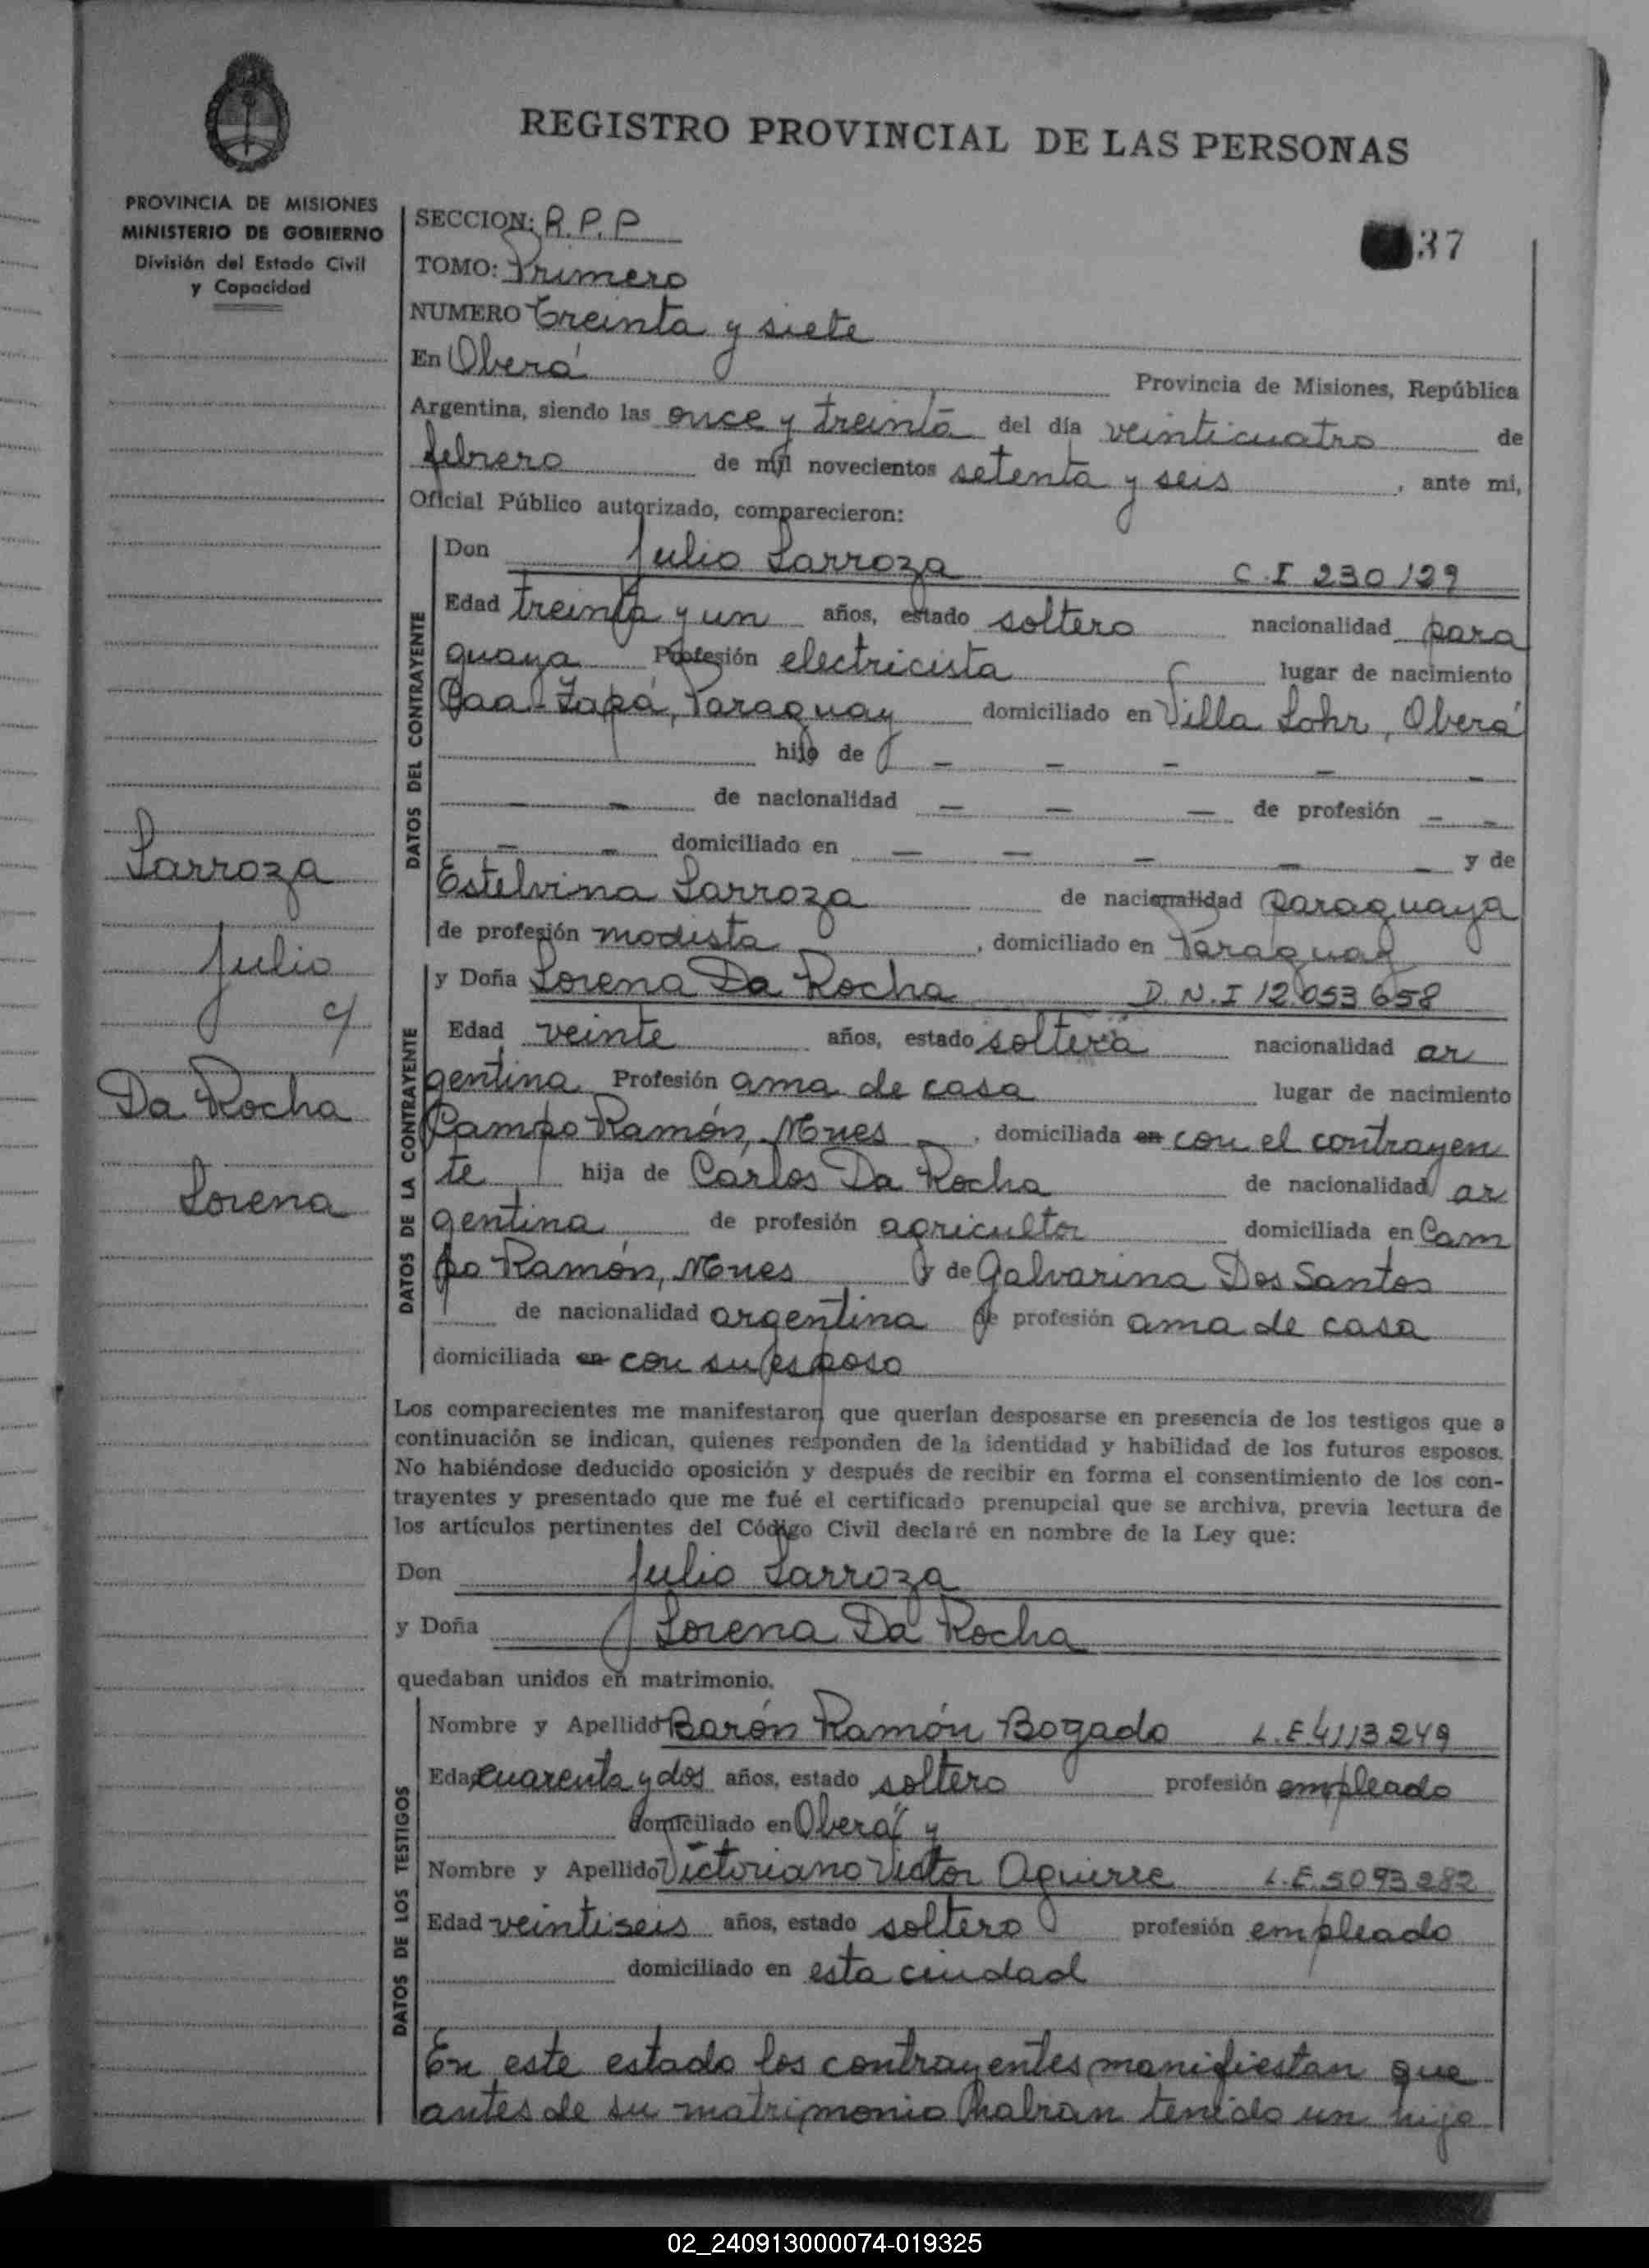 REGISTRO PROVINCIAL DE LAS PERSONAS
PROVINCIA DE MISIONES
MINISTERIO DE GOBIERNO
División del Estado Civil
y Capacidad
37
SECCION: R.P.P
TOMO: Primero
NUMERO Treinta y siete
En Oberá Provincia de Misiones, República
Argentina, siendo las once y treinta del día veinticuatro de
febrero de mil novecientos setenta y seis, ante mi,
Oficial Público autorizado, comparecieron:
DATOS DEL CONTRAYENTE
Don Julio Sarroza C.I 230129
Edad treinta y un años, estado soltero nacionalidad para
guaya Profesión electricista lugar de nacimiento
Caa-Zapá, Paraguay domiciliado en Villa Lohr, Oberá
hijo de — — — — —
— — de nacionalidad — — — de profesión — —
— — domiciliado en — — — — — y de
Estelvina Sarroza de nacionalidad paraguaya
de profesión modista, domiciliado en Paraguay
Sarroza
Julio
c/
Da Rocha
Lorena
DATOS DE LA CONTRAYENTE
y Doña Lorena Da Rocha D.N.I 12.053.658
Edad veinte años, estado soltera nacionalidad ar
gentina Profesión ama de casa lugar de nacimiento
Campo Ramón, Mnes, domiciliada en con el contrayen
te hija de Carlos Da Rocha de nacionalidad ar
gentina de profesión agricultor domiciliada en Cam
po Ramón, Mnes y de Galvarina Dos Santos
de nacionalidad argentina de profesión ama de casa
domiciliada en con su esposo
Los comparecientes me manifestaron que querían desposarse en presencia de los testigos que a
continuación se indican, quienes responden de la identidad y habilidad de los futuros esposos.
No habiéndose deducido oposición y después de recibir en forma el consentimiento de los con-
trayentes y presentado que me fué el certificado prenupcial que se archiva, previa lectura de
los artículos pertinentes del Código Civil declaré en nombre de la Ley que:
Don Julio Sarroza
y Doña Lorena Da Rocha
quedaban unidos en matrimonio.
DATOS DE LOS TESTIGOS
Nombre y Apellido Barón Ramón Bogado L.E 4113249
Edad cuarenta y dos años, estado soltero profesión empleado
domiciliado en Oberá y
Nombre y Apellido Victoriano Victor Aguirre L.E. 5093282
Edad veintiseis años, estado soltero profesión empleado
domiciliado en esta ciudad
En este estado los contrayentes manifiestan que
antes de su matrimonio habian tenido un hijo
02_240913000074-019325